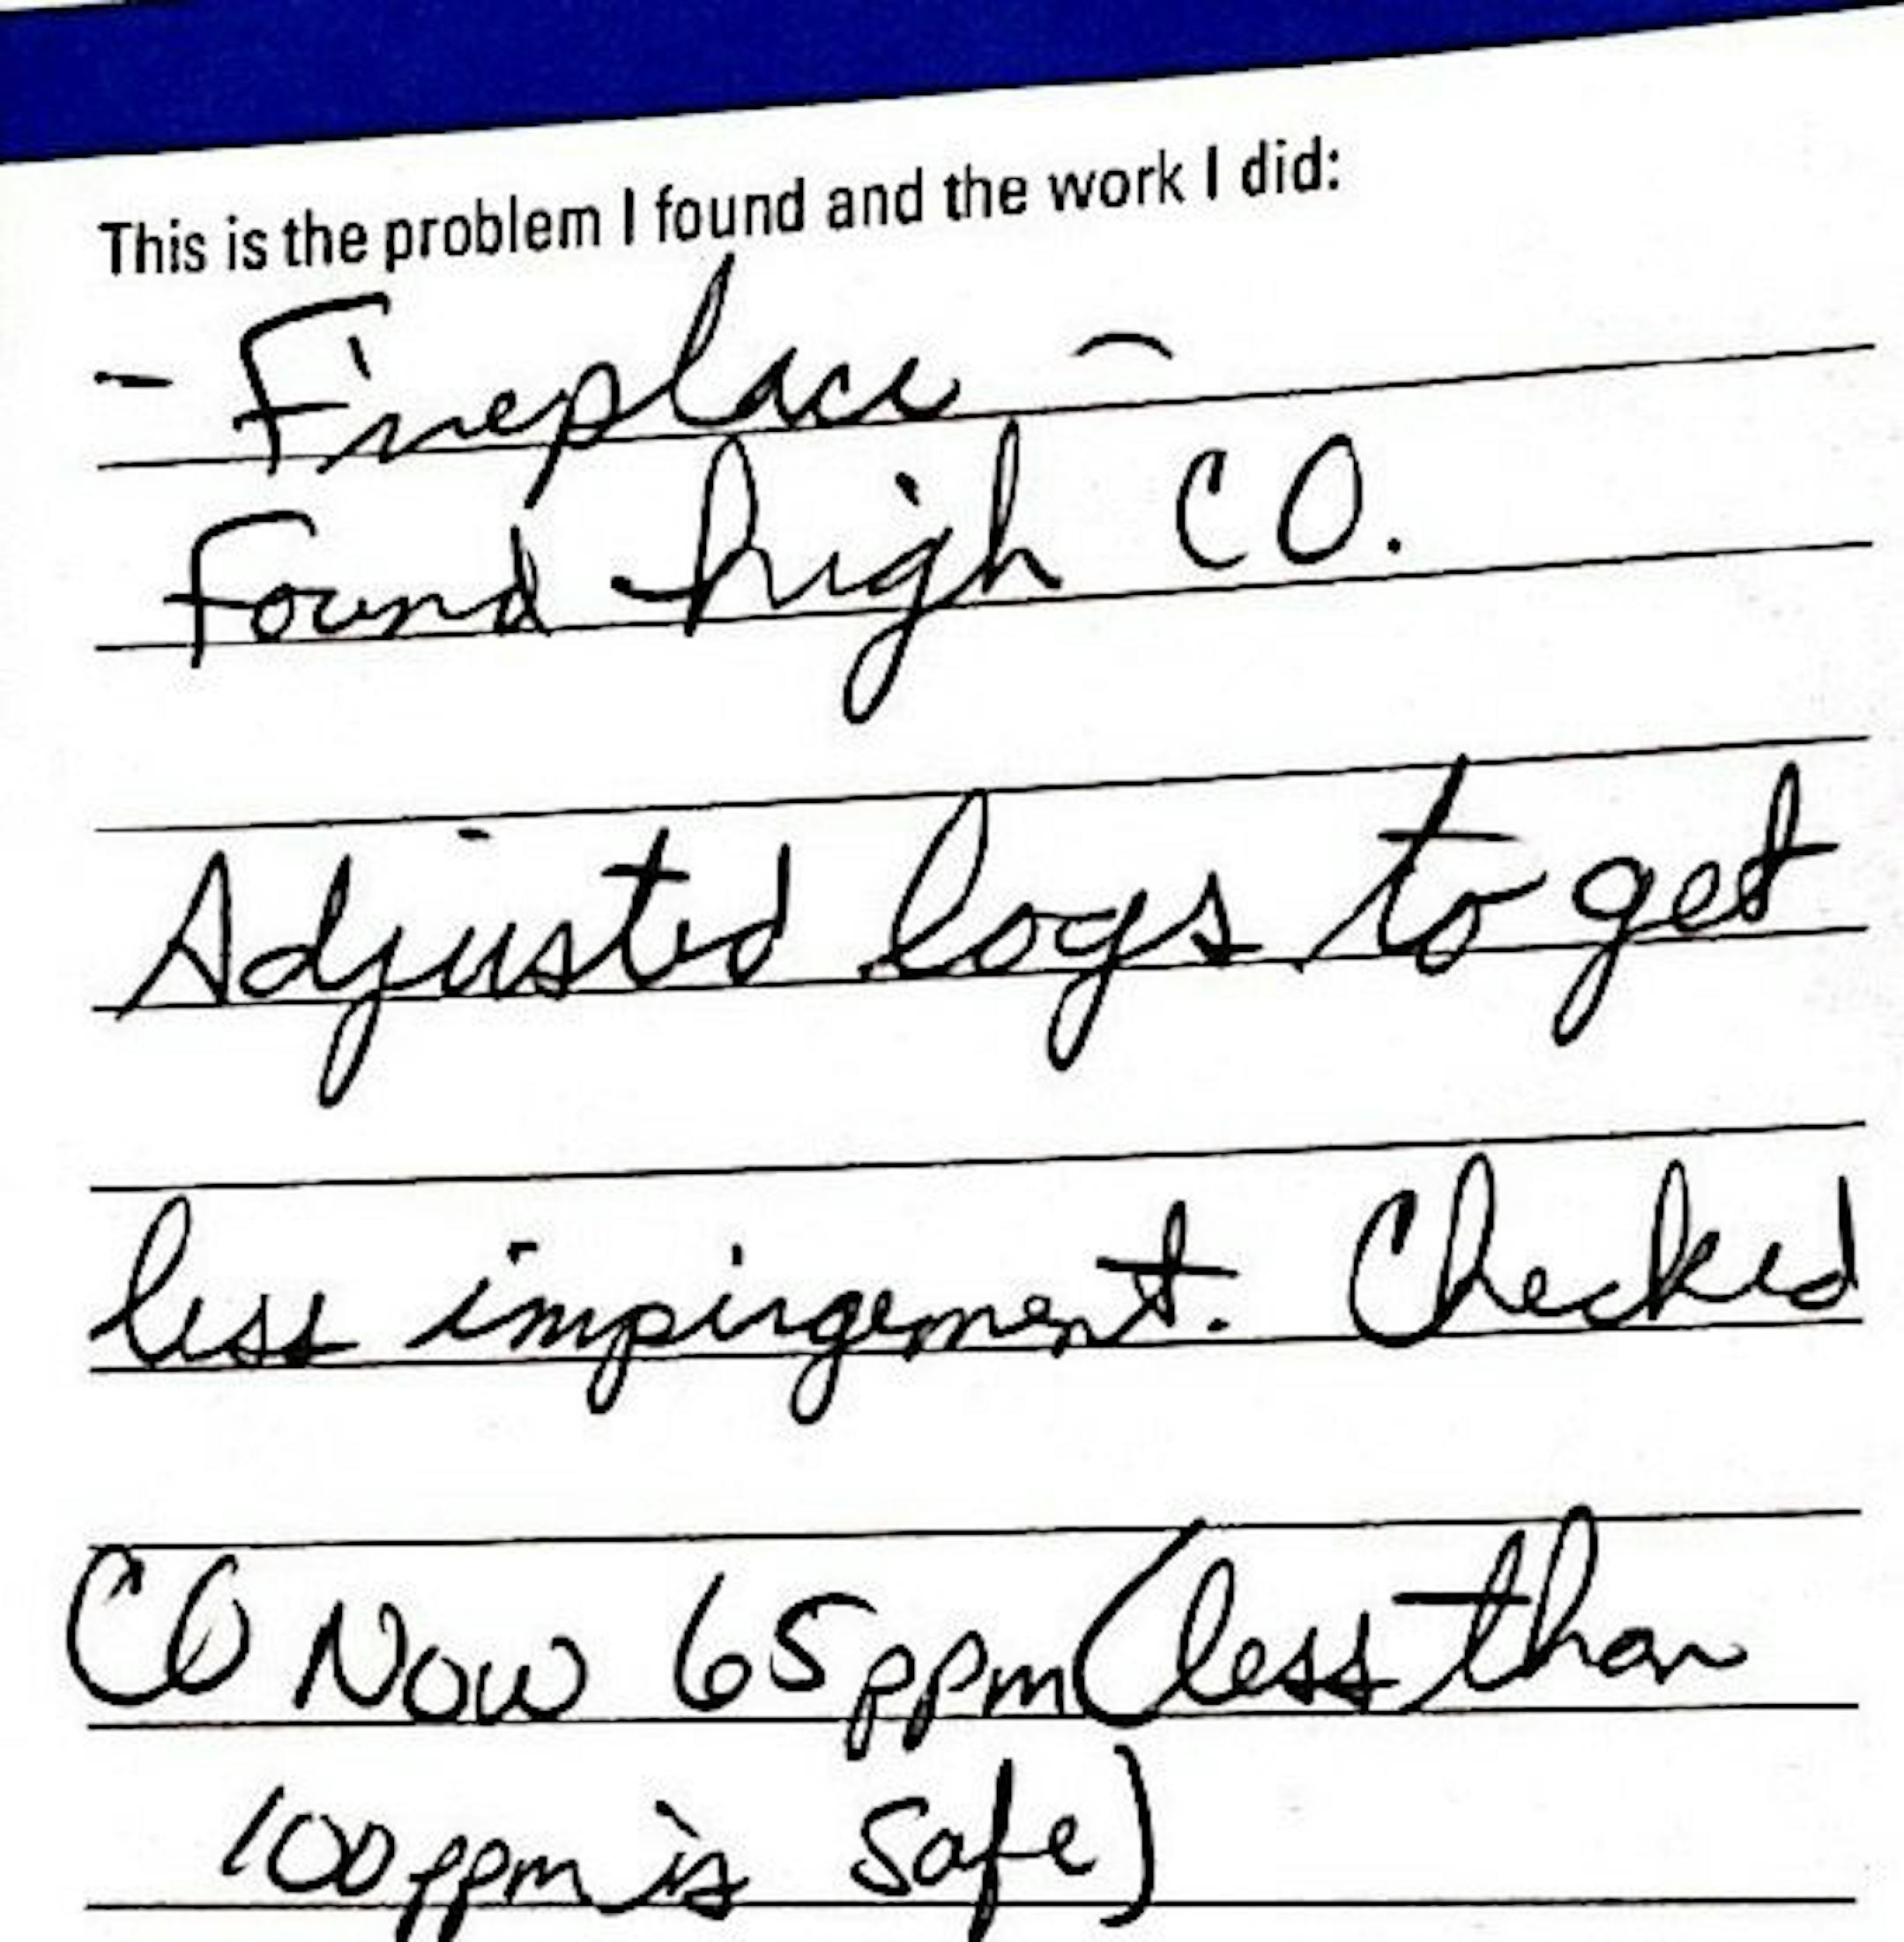 This is the problem I found and the work I did:
- Fireplace -
Found high CO.
Adjusted logs to get
less impingement. Checked
CO Now 65ppm (less than
100ppm is safe)